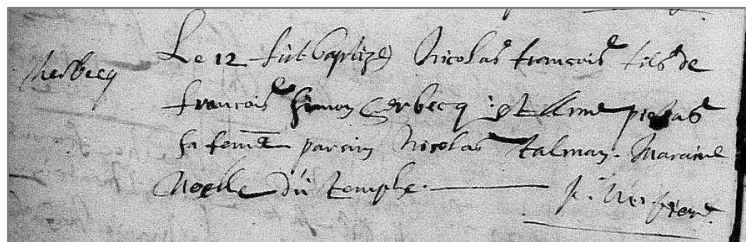 Cherbecq
Le 12 fut baptizé Nicolas francois fils de
francois simon Cerbecq et Anne
sa feme parain Nicolas talman. Maraine
Noelle du temple.